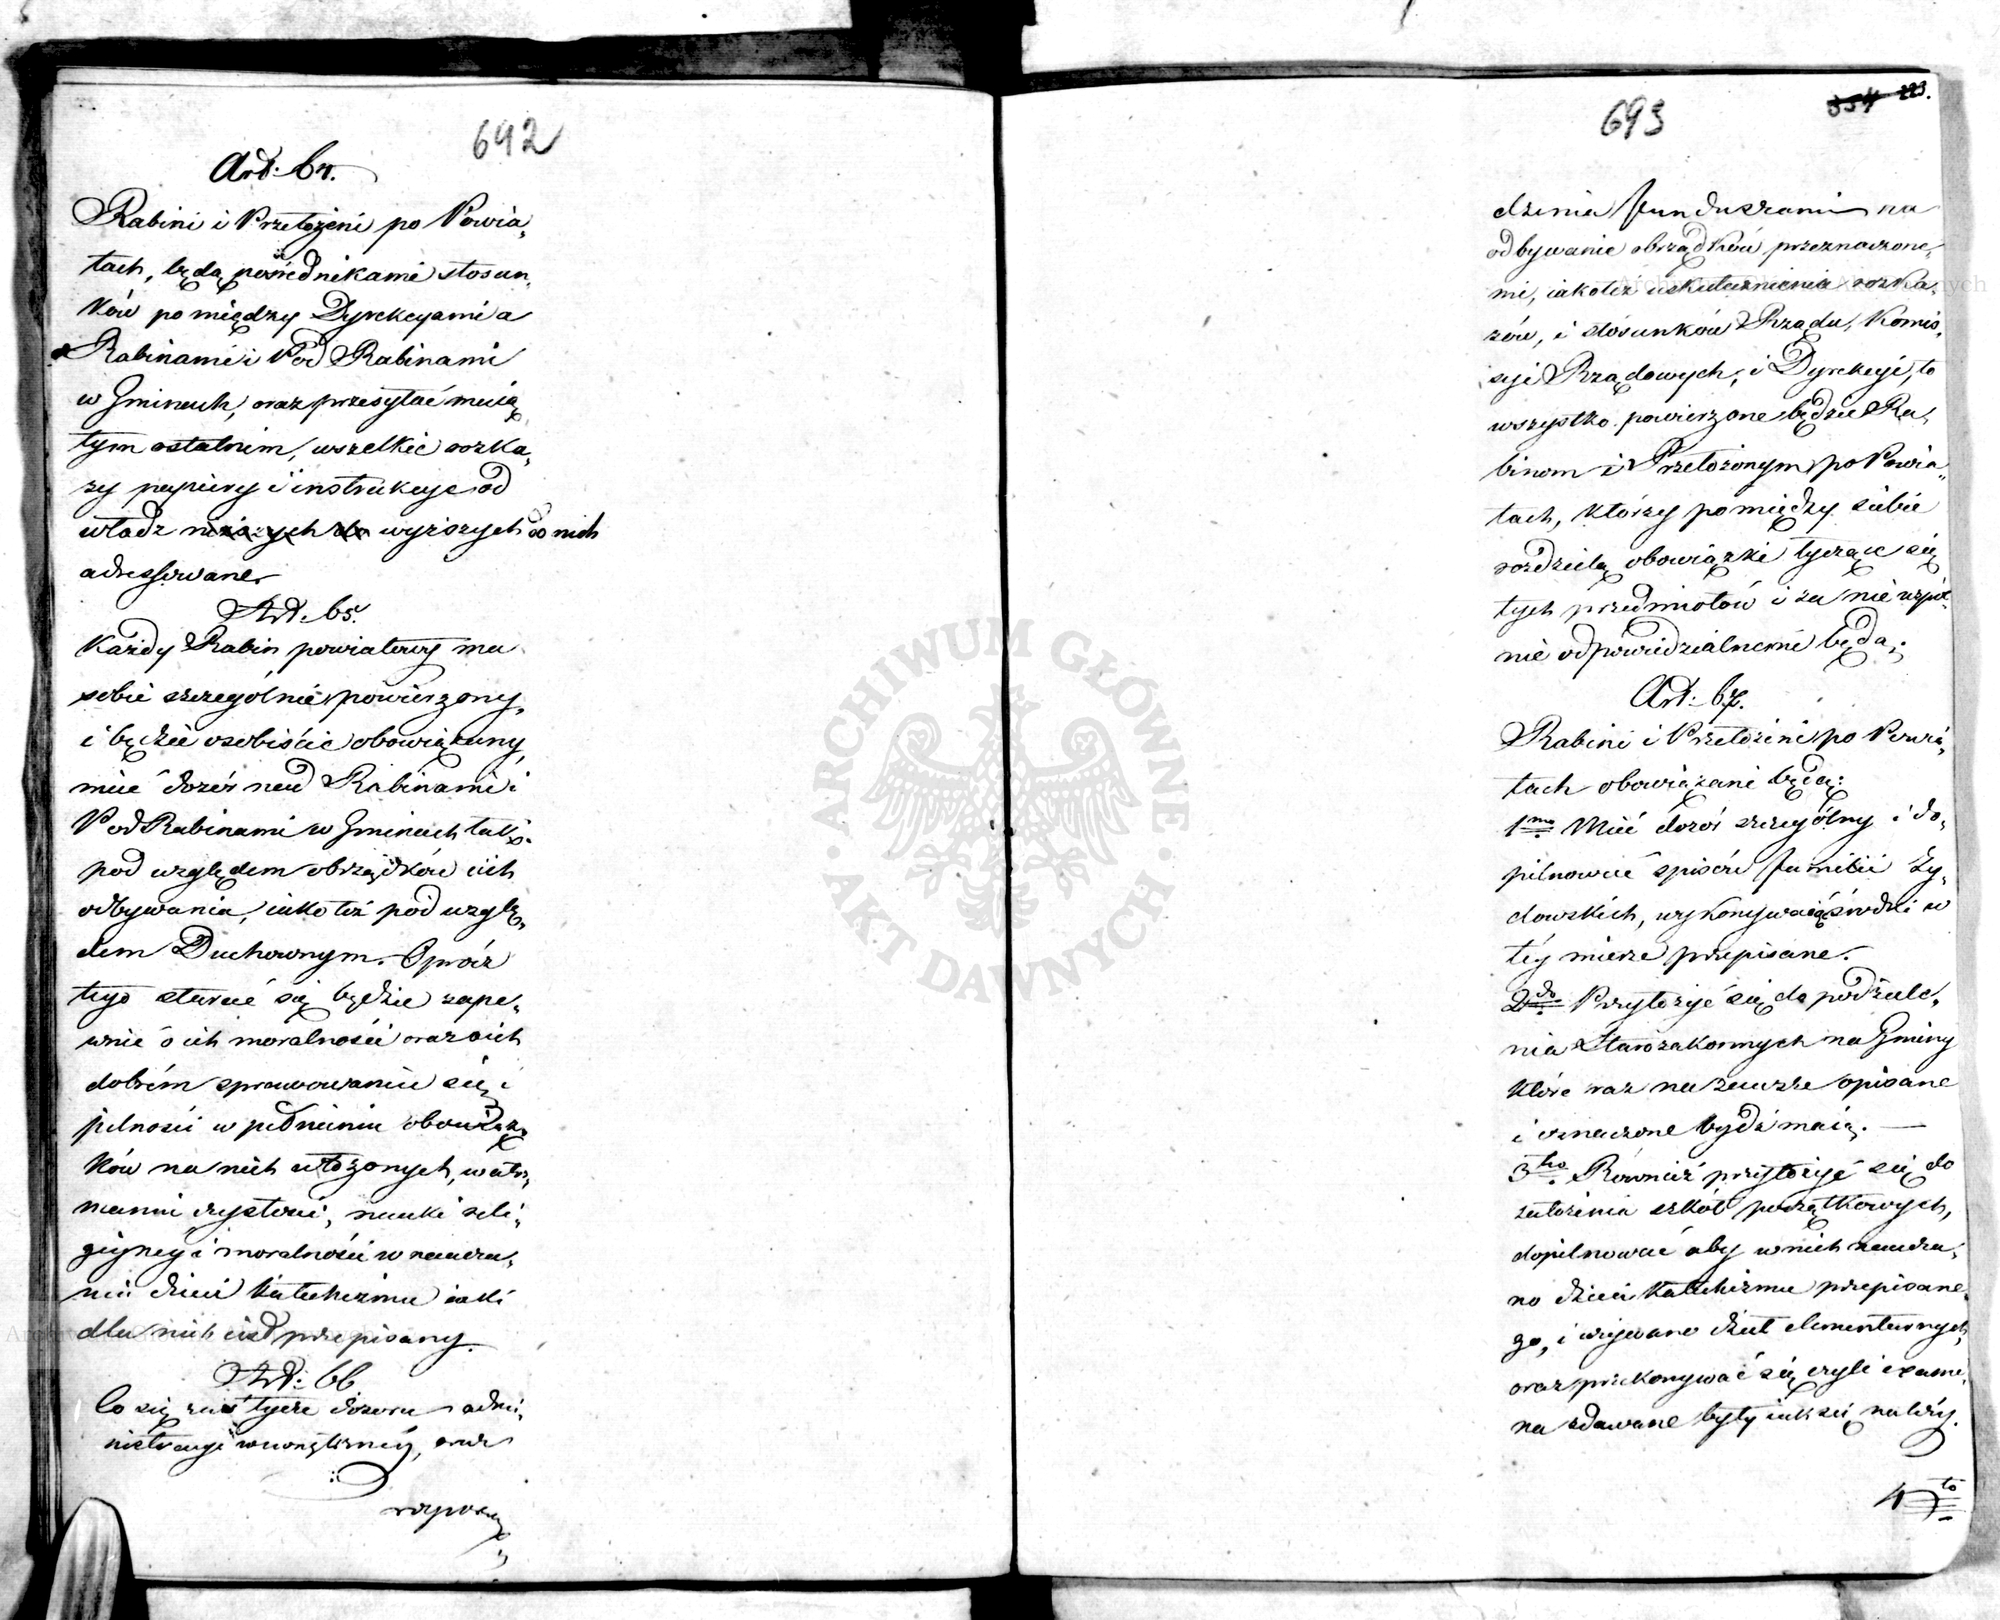 692
Art: 64.
Rabini i Przełożeni po Powia„
tach, będą pośrednikami stosun„
ków pomiędzy Dyrekcyami a
Rabinami i Pod Rabinami
w Gminach, oraz przesyłać maią
tym ostatnim, wszelkie rozka„
zy papiery i instrukcye od
władz niższych do wyższych do nich
adressowane.
Art: 65.
Każdy Rabin powiatowy ma
sobie szczególnie powierzony,
i będzie osobiście obowiązany,
mieć dozór nad Rabinami i
Pod Rabinami w Gminach tak
pod względem obrządków ich
odbywania, iako też pod wzglę„
dem Duchownym. Oprócz
tego starać się będzie zape„
wnić o ich moralności oraz o ich
dobrém sprawowaniu się i
pilności w pełnieniu obowiąz„
ków na nich włożonych, w utrzy„
maniu czystości, nauki reli„
giyney i moralności w naucza„
niu dzieci Katechizmu iaki
dla nich iest przepisany.
Art: 66
Co się zaś tycze dozoru admi„
nistracyi wewnętrznéy, oraz
rozporzą„
693
354 223.
dzenia funduszami na
odbywanie obrządków przeznaczone„
mi, iakoteż uskutecznienia rozka„
zów, i stósunków Rządu, Komis„
syi Rządowych, i Dyrekcyi, to
wszystko powierzone będzie Ra„
binom i Przełożonym po Powia„
tach, którzy pomiędzy siebie
rozdzielą obowiązki tyczące się
tych przedmiotów i za nie wspól„
nie odpowiedzialnemi będą.
Art: 67.
Rabini i Przełożeni po Powia„
tach obowiązani będą:
1mo Mieć dozór szczególny i do„
pilnować spisów familii Ży„
dowskich, wykonywaiąc środki w
téy mierze przepisane.
2do Przyłożyć się do podziele„
nia Starozakonnych na Gminy
które raz na zawsze opisane
i oznaczone bydź maią. —
3tio Również przyłożyć się do
założenia szkół początkowych,
dopilnować aby w nich naucza„
no dzieci Katechizmu przepisane„
go, i używano dzieł elementarnych,
oraz przekonywać się czyli exame„
na zdawane były iak się należy.
4to
ARCHIWUM GŁÓWNE
AKT DAWNYCH